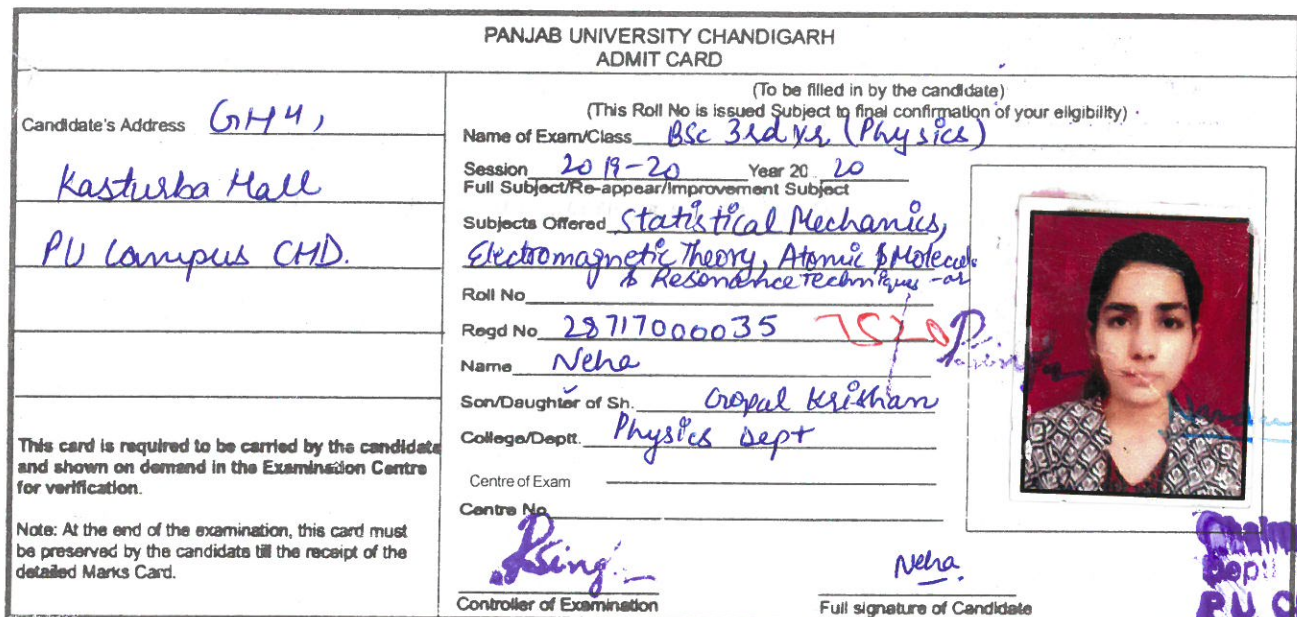 PANJAB UNIVERSITY CHANDIGARH
ADMIT CARD
Candidate's Address GH4,
Kasturba Hall
PU Campus CHD.
This card is required to be carried by the candidate
and shown on demand in the Examination Centre
for verification.
Note: At the end of the examination, this card must
be preserved by the candidate till the receipt of the
detailed Marks Card.
(To be filled in by the candidate)
(This Roll No is issued Subject to final confirmation of your eligibility)
Name of Exam/Class BSc 3rd Yr (Physics)
Session 2019-20 Year 20 20
Full Subject/Re-appear/Improvement Subject
Subjects Offered Statistical Mechanics,
Electromagnetic Theory, Atomic & Molecul-
& Resonance Techniques -ar
Roll No
Regd No 28717000035 7520
Name Neha
Son/Daughter of Sh. Gopal Krishan
College/Deptt. Physics Dept
Centre of Exam
Centre No
Controller of Examination
Neha
Full signature of Candidate
Dept
P.U.